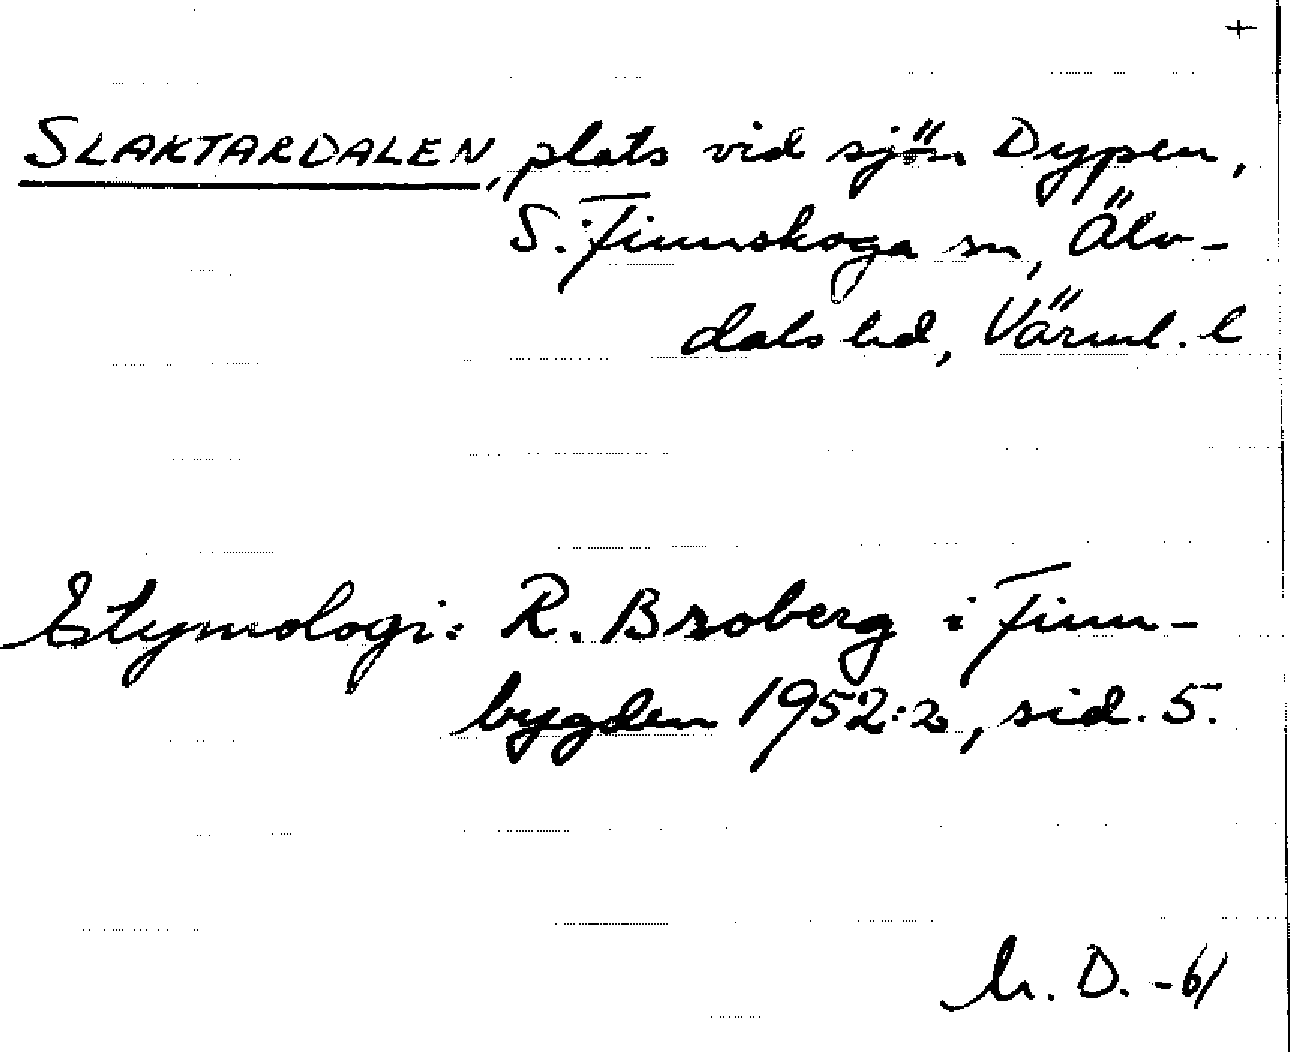 +
SLAKTARDALEN, plats vid sjön Dypen,
S. Finnskoga sn, Älv-
dals hd, Värml. l
Etymologi: R. Broberg i Finn-
bygden 1952:2, sid. 5.
D. -61